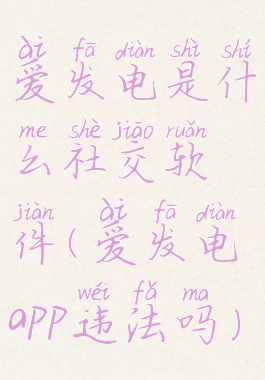 ài fā diàn shì shí
爱发电是什
me shè jiāo ruǎn
么社交软
jiàn ài fā diàn
件(爱发电
wéi fǎ ma
app违法吗)